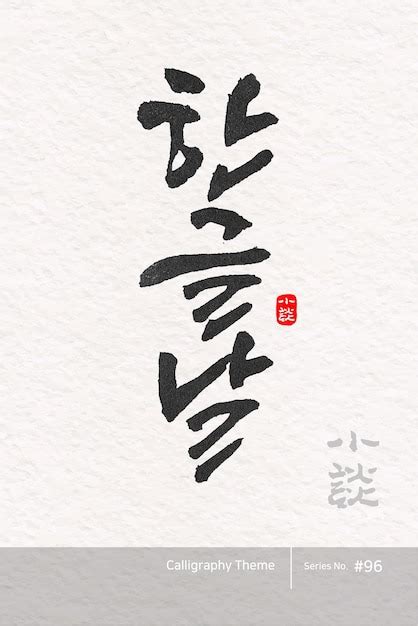 한글날
小談
小談
Calligraphy Theme
Series No. #96